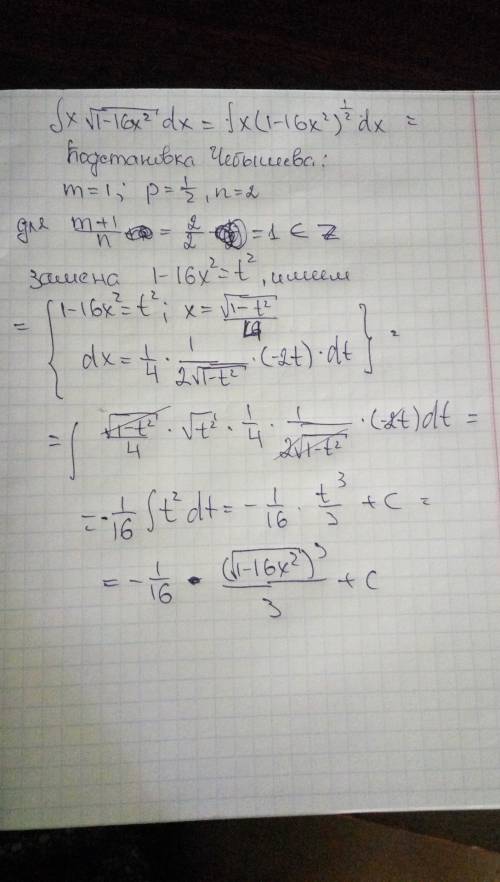 ∫x√(1-16x²) dx = ∫x(1-16x²)^(1/2) dx =
Подстановка Чебышева:
m=1; p=1/2, n=2
для (m+1)/n = 2/2 = 1 ∈ Z
замена 1-16x²=t², имеем
= { 1-16x²=t²; x=√(1-t²)/4
dx = 1/4 · 1/(2√(1-t²)) · (-2t) · dt } =
= ∫ √(1-t²)/4 · √t² · 1/4 · 1/(2√(1-t²)) · (-2t)dt =
= -1/16 ∫t² dt = -1/16 · t³/3 + C =
= -1/16 · (√(1-16x²))³/3 + C